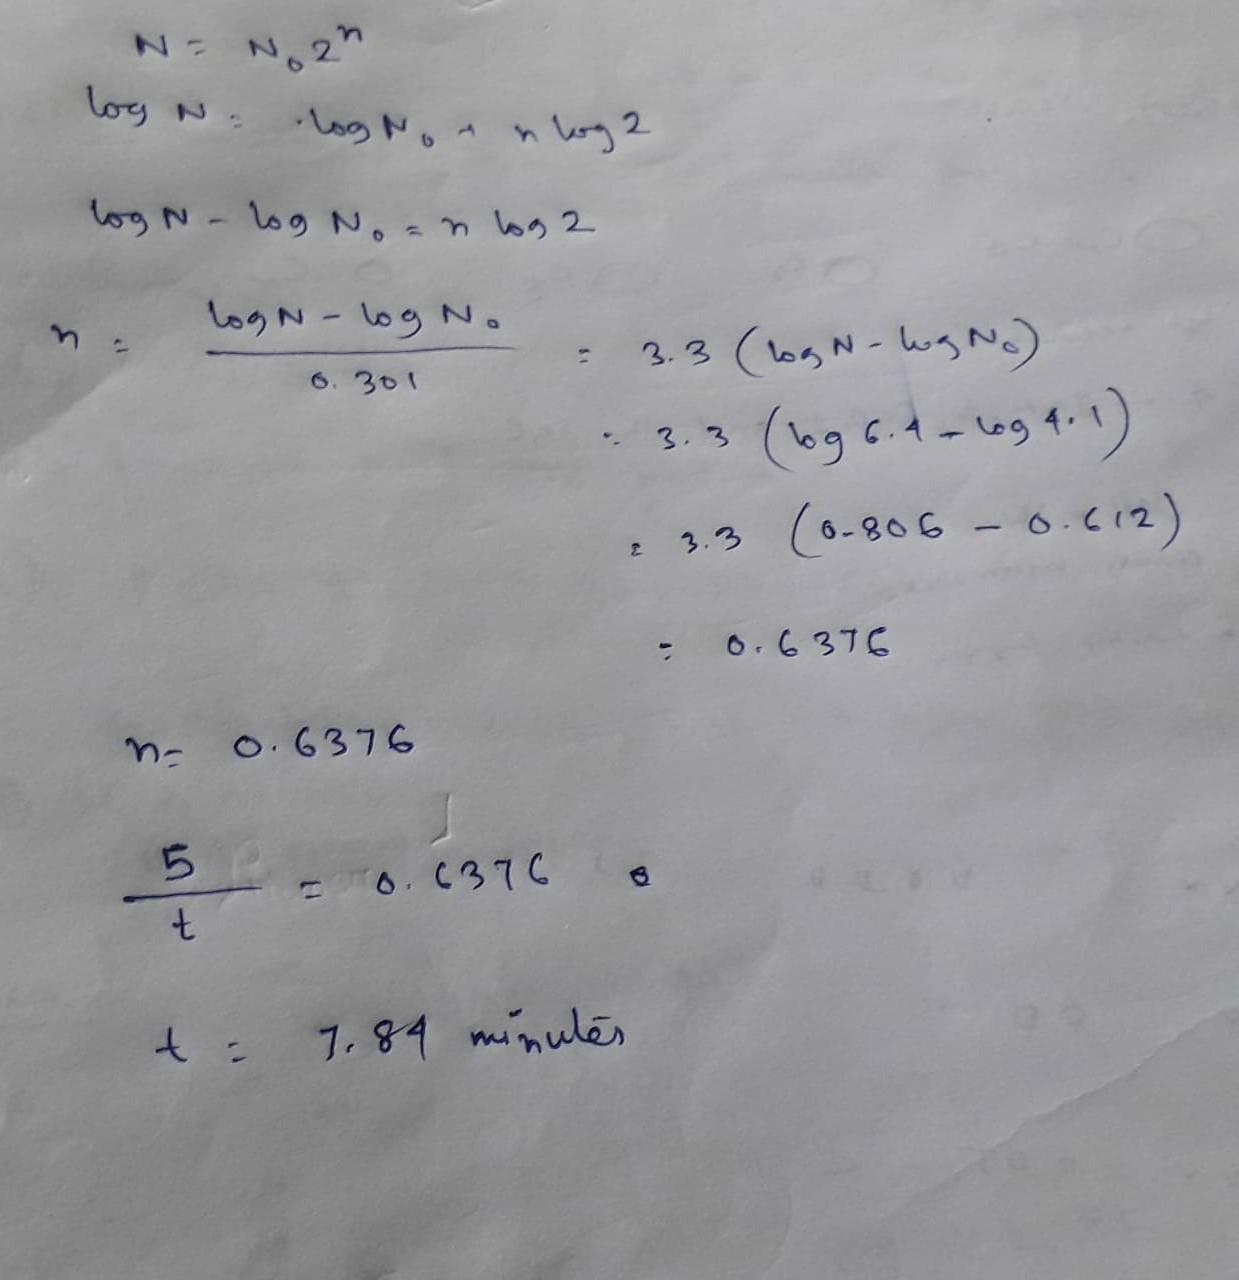 N = N₀2ⁿ
log N = log N₀ + n log 2
log N - log N₀ = n log 2
n = (log N - log N₀) / 0.301 = 3.3 (log N - log N₀)
= 3.3 (log 6.4 - log 4.1)
= 3.3 (0.806 - 0.612)
= 0.6376
n = 0.6376
5/t = 0.6376
t = 7.84 minutes